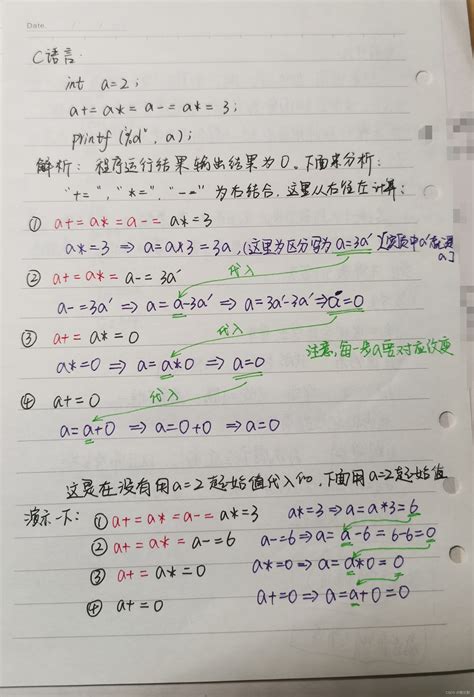 Date. / /
C语言.
int a=2;
a+= a*= a-= a*= 3;
printf("%d", a);
解析: 程序运行结果输出结果为0。下面来分析:
"+=", "*=", "-=" 为右结合, 这里从右往左计算:
① a+= a*= a-= a*=3
a*=3 ⇒ a=a*3=3a, (这里为区分写为 a=3a') [实际中a'就是a]
② a+= a*= a-=3a' 代入
a-=3a' ⇒ a=a-3a' ⇒ a=3a'-3a' ⇒ a=0
③ a+= a*=0 代入
a*=0 ⇒ a=a*0 ⇒ a=0 注意,每一步a要对应改变
④ a+=0 代入
a=a+0 ⇒ a=0+0 ⇒ a=0
这是在没有用a=2起始值代入的, 下面用a=2起始值
演示一下: ① a+= a*= a-= a*=3 a*=3 ⇒ a=a*3=6
② a+= a*= a-=6 a-=6 ⇒ a=a-6=6-6=0
③ a+= a*=0 a*=0 ⇒ a=a*0=0
④ a+=0 a+=0 ⇒ a=a+0=0